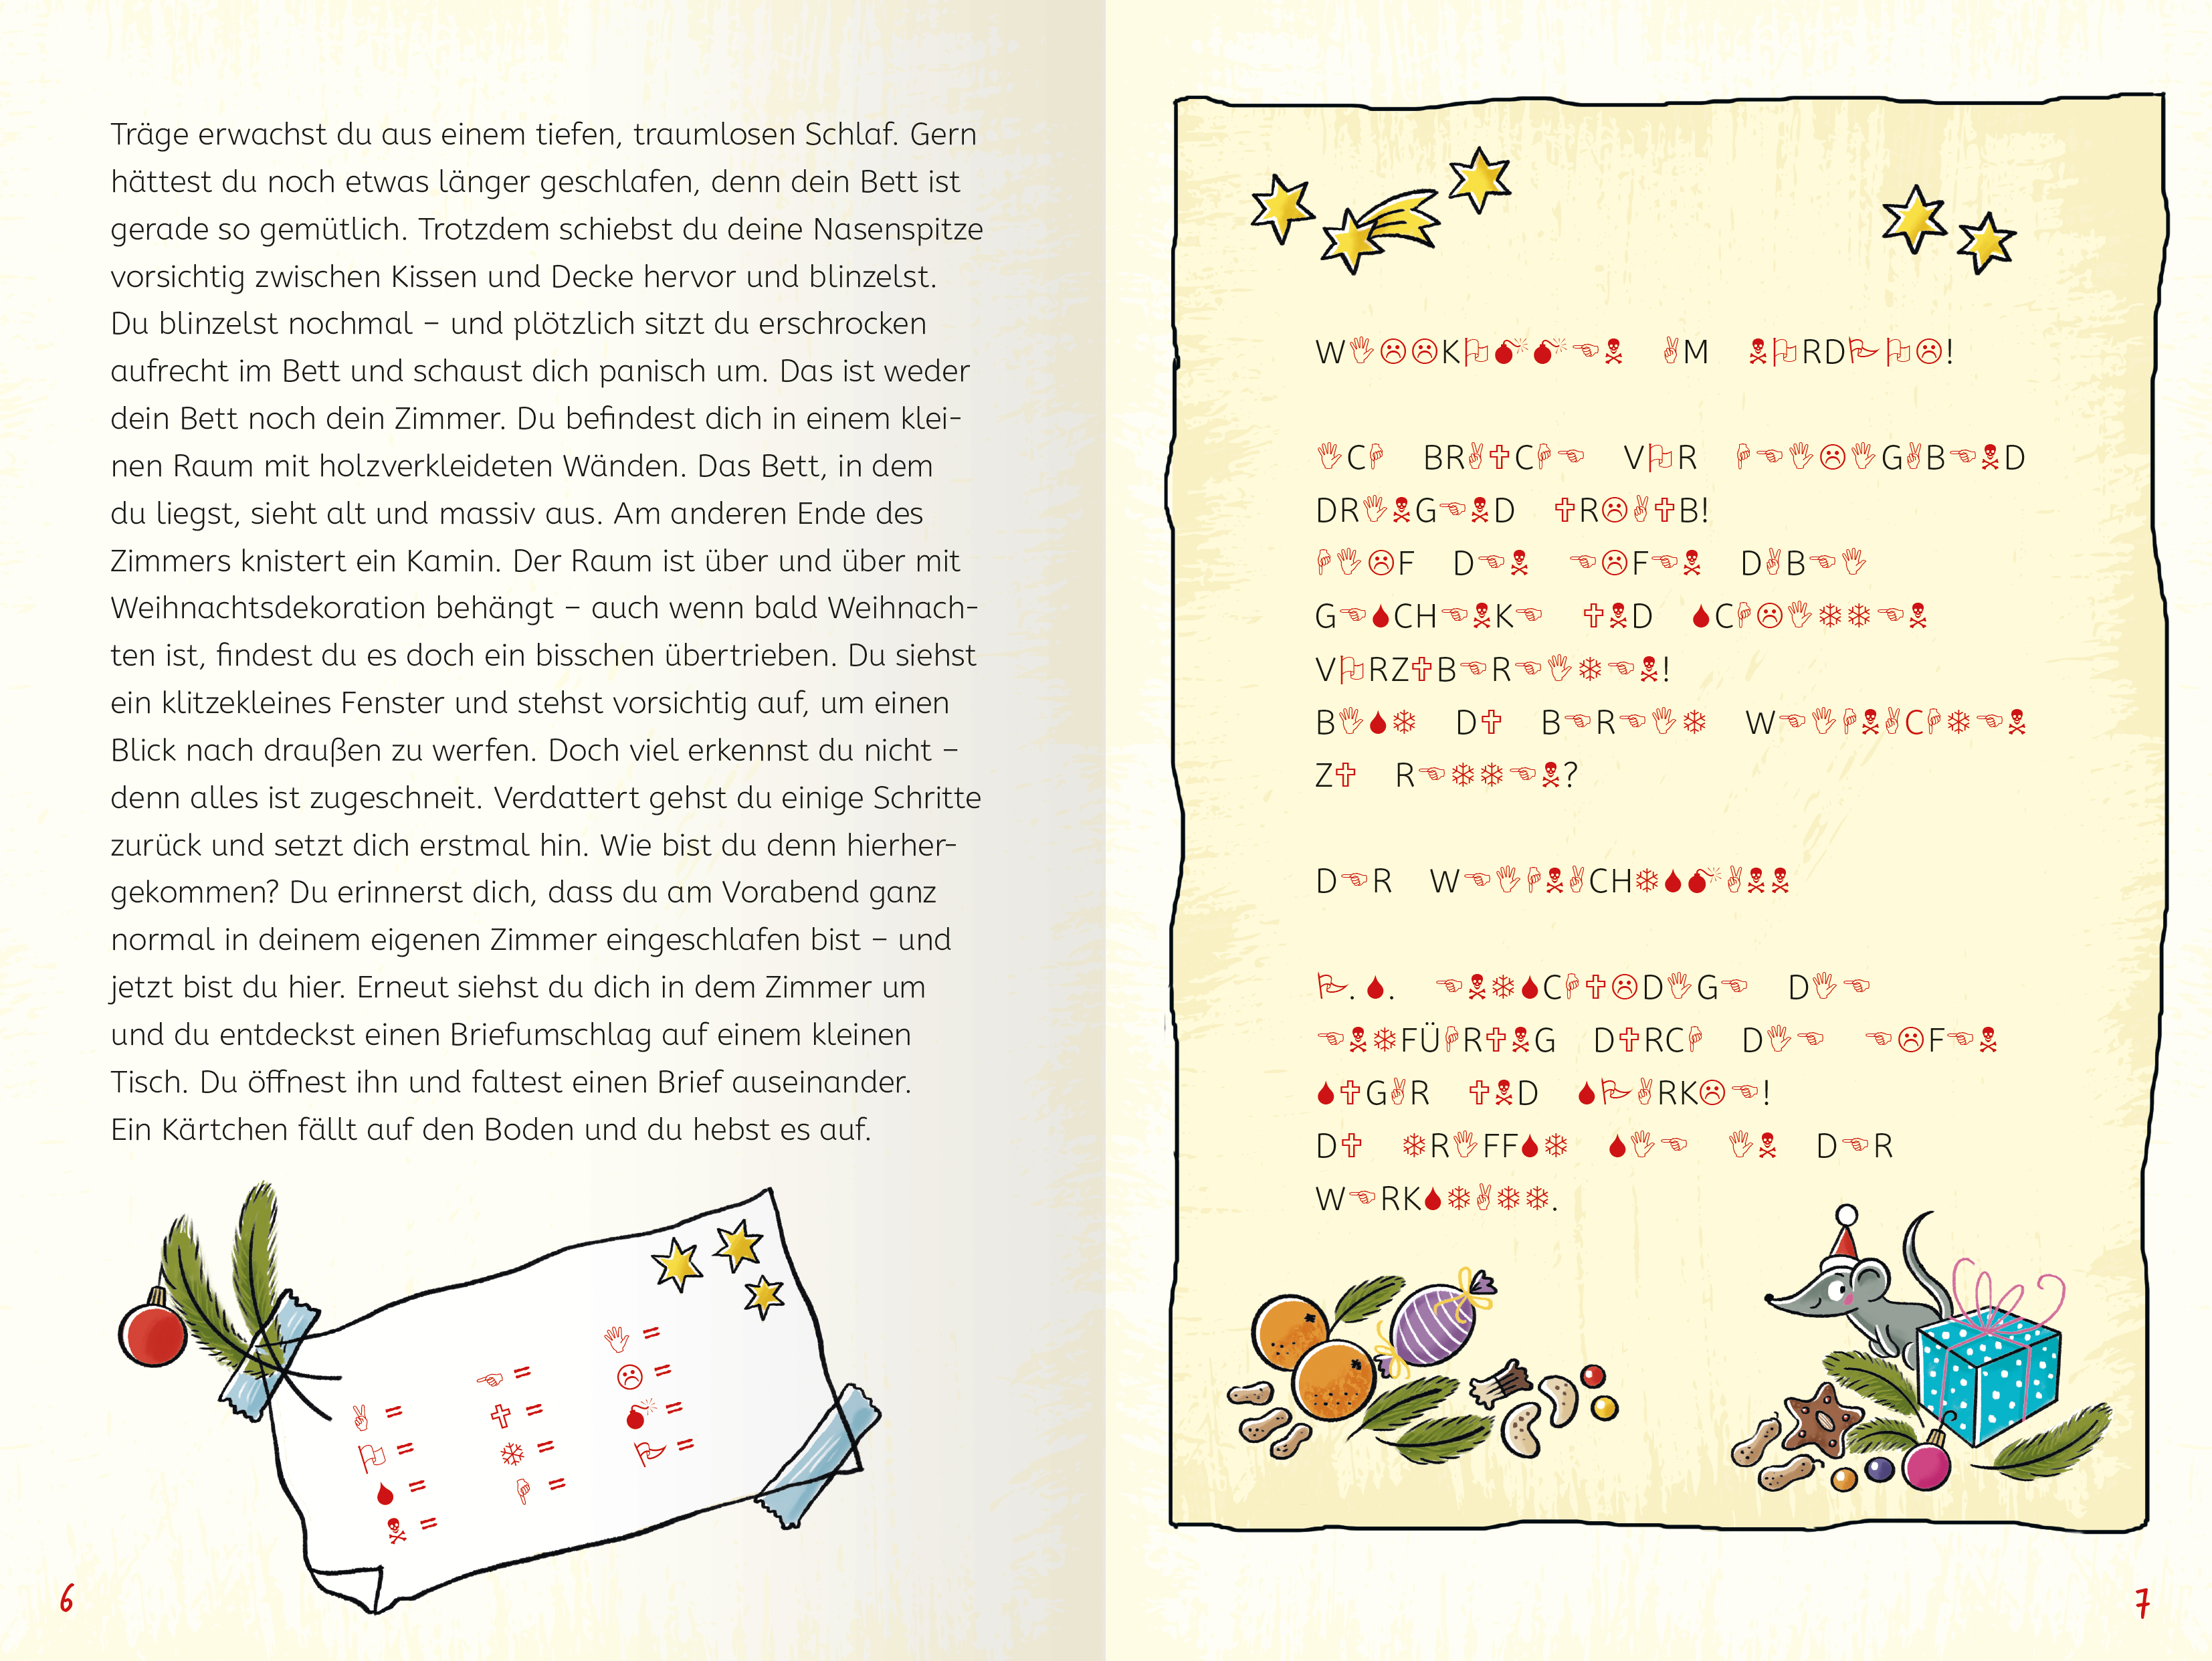 Träge erwachst du aus einem tiefen, traumlosen Schlaf. Gern
hättest du noch etwas länger geschlafen, denn dein Bett ist
gerade so gemütlich. Trotzdem schiebst du deine Nasenspitze
vorsichtig zwischen Kissen und Decke hervor und blinzelst.
Du blinzelst nochmal – und plötzlich sitzt du erschrocken
aufrecht im Bett und schaust dich panisch um. Das ist weder
dein Bett noch dein Zimmer. Du befindest dich in einem klei-
nen Raum mit holzverkleideten Wänden. Das Bett, in dem
du liegst, sieht alt und massiv aus. Am anderen Ende des
Zimmers knistert ein Kamin. Der Raum ist über und über mit
Weihnachtsdekoration behängt – auch wenn bald Weihnach-
ten ist, findest du es doch ein bisschen übertrieben. Du siehst
ein klitzekleines Fenster und stehst vorsichtig auf, um einen
Blick nach draußen zu werfen. Doch viel erkennst du nicht –
denn alles ist zugeschneit. Verdattert gehst du einige Schritte
zurück und setzt dich erstmal hin. Wie bist du denn hierher-
gekommen? Du erinnerst dich, dass du am Vorabend ganz
normal in deinem eigenen Zimmer eingeschlafen bist – und
jetzt bist du hier. Erneut siehst du dich in dem Zimmer um
und du entdeckst einen Briefumschlag auf einem kleinen
Tisch. Du öffnest ihn und faltest einen Brief auseinander.
Ein Kärtchen fällt auf den Boden und du hebst es auf.
✌ =
🏳 =
💧 =
☠ =
☜ =
🕆 =
❄ =
☟ =
🖐 =
☹ =
💣 =
🏱 =
6
W🖐☹☹K🏳💣💣☜☠ ✌M ☠🏳RD🏱🏳☹!
🖐C☟ BR✌🕆C☟☜ V🏳R ☟☜🖐☹🖐G✌B☜☠D
DR🖐☠G☜☠D 🕆R☹✌🕆B!
☟🖐☹F D☜☠ ☜☹F☜☠ D✌B☜🖐
G☜💧CH☜☠K☜ 🕆☠D 💧C☟☹🖐❄❄☜☠
V🏳RZ🕆B☜R☜🖐❄☜☠!
B🖐💧❄ D🕆 B☜R☜🖐❄ W☜🖐☟☠✌C☟❄☜☠
Z🕆 R☜❄❄☜☠?
D☜R W☜🖐☟☠✌CH❄💧💣✌☠☠
🏱. 💧. ☜☠❄💧C☟🕆☹D🖐G☜ D🖐☜
☜☠❄FÜ☟R🕆☠G D🕆RC☟ D🖐☜ ☜☹F☜☠
💧🕆G✌R 🕆☠D 💧🏱✌RK☹☜!
D🕆 ❄R🖐FF💧❄ 💧🖐☜ 🖐☠ D☜R
W☜RK💧❄✌❄❄.
7